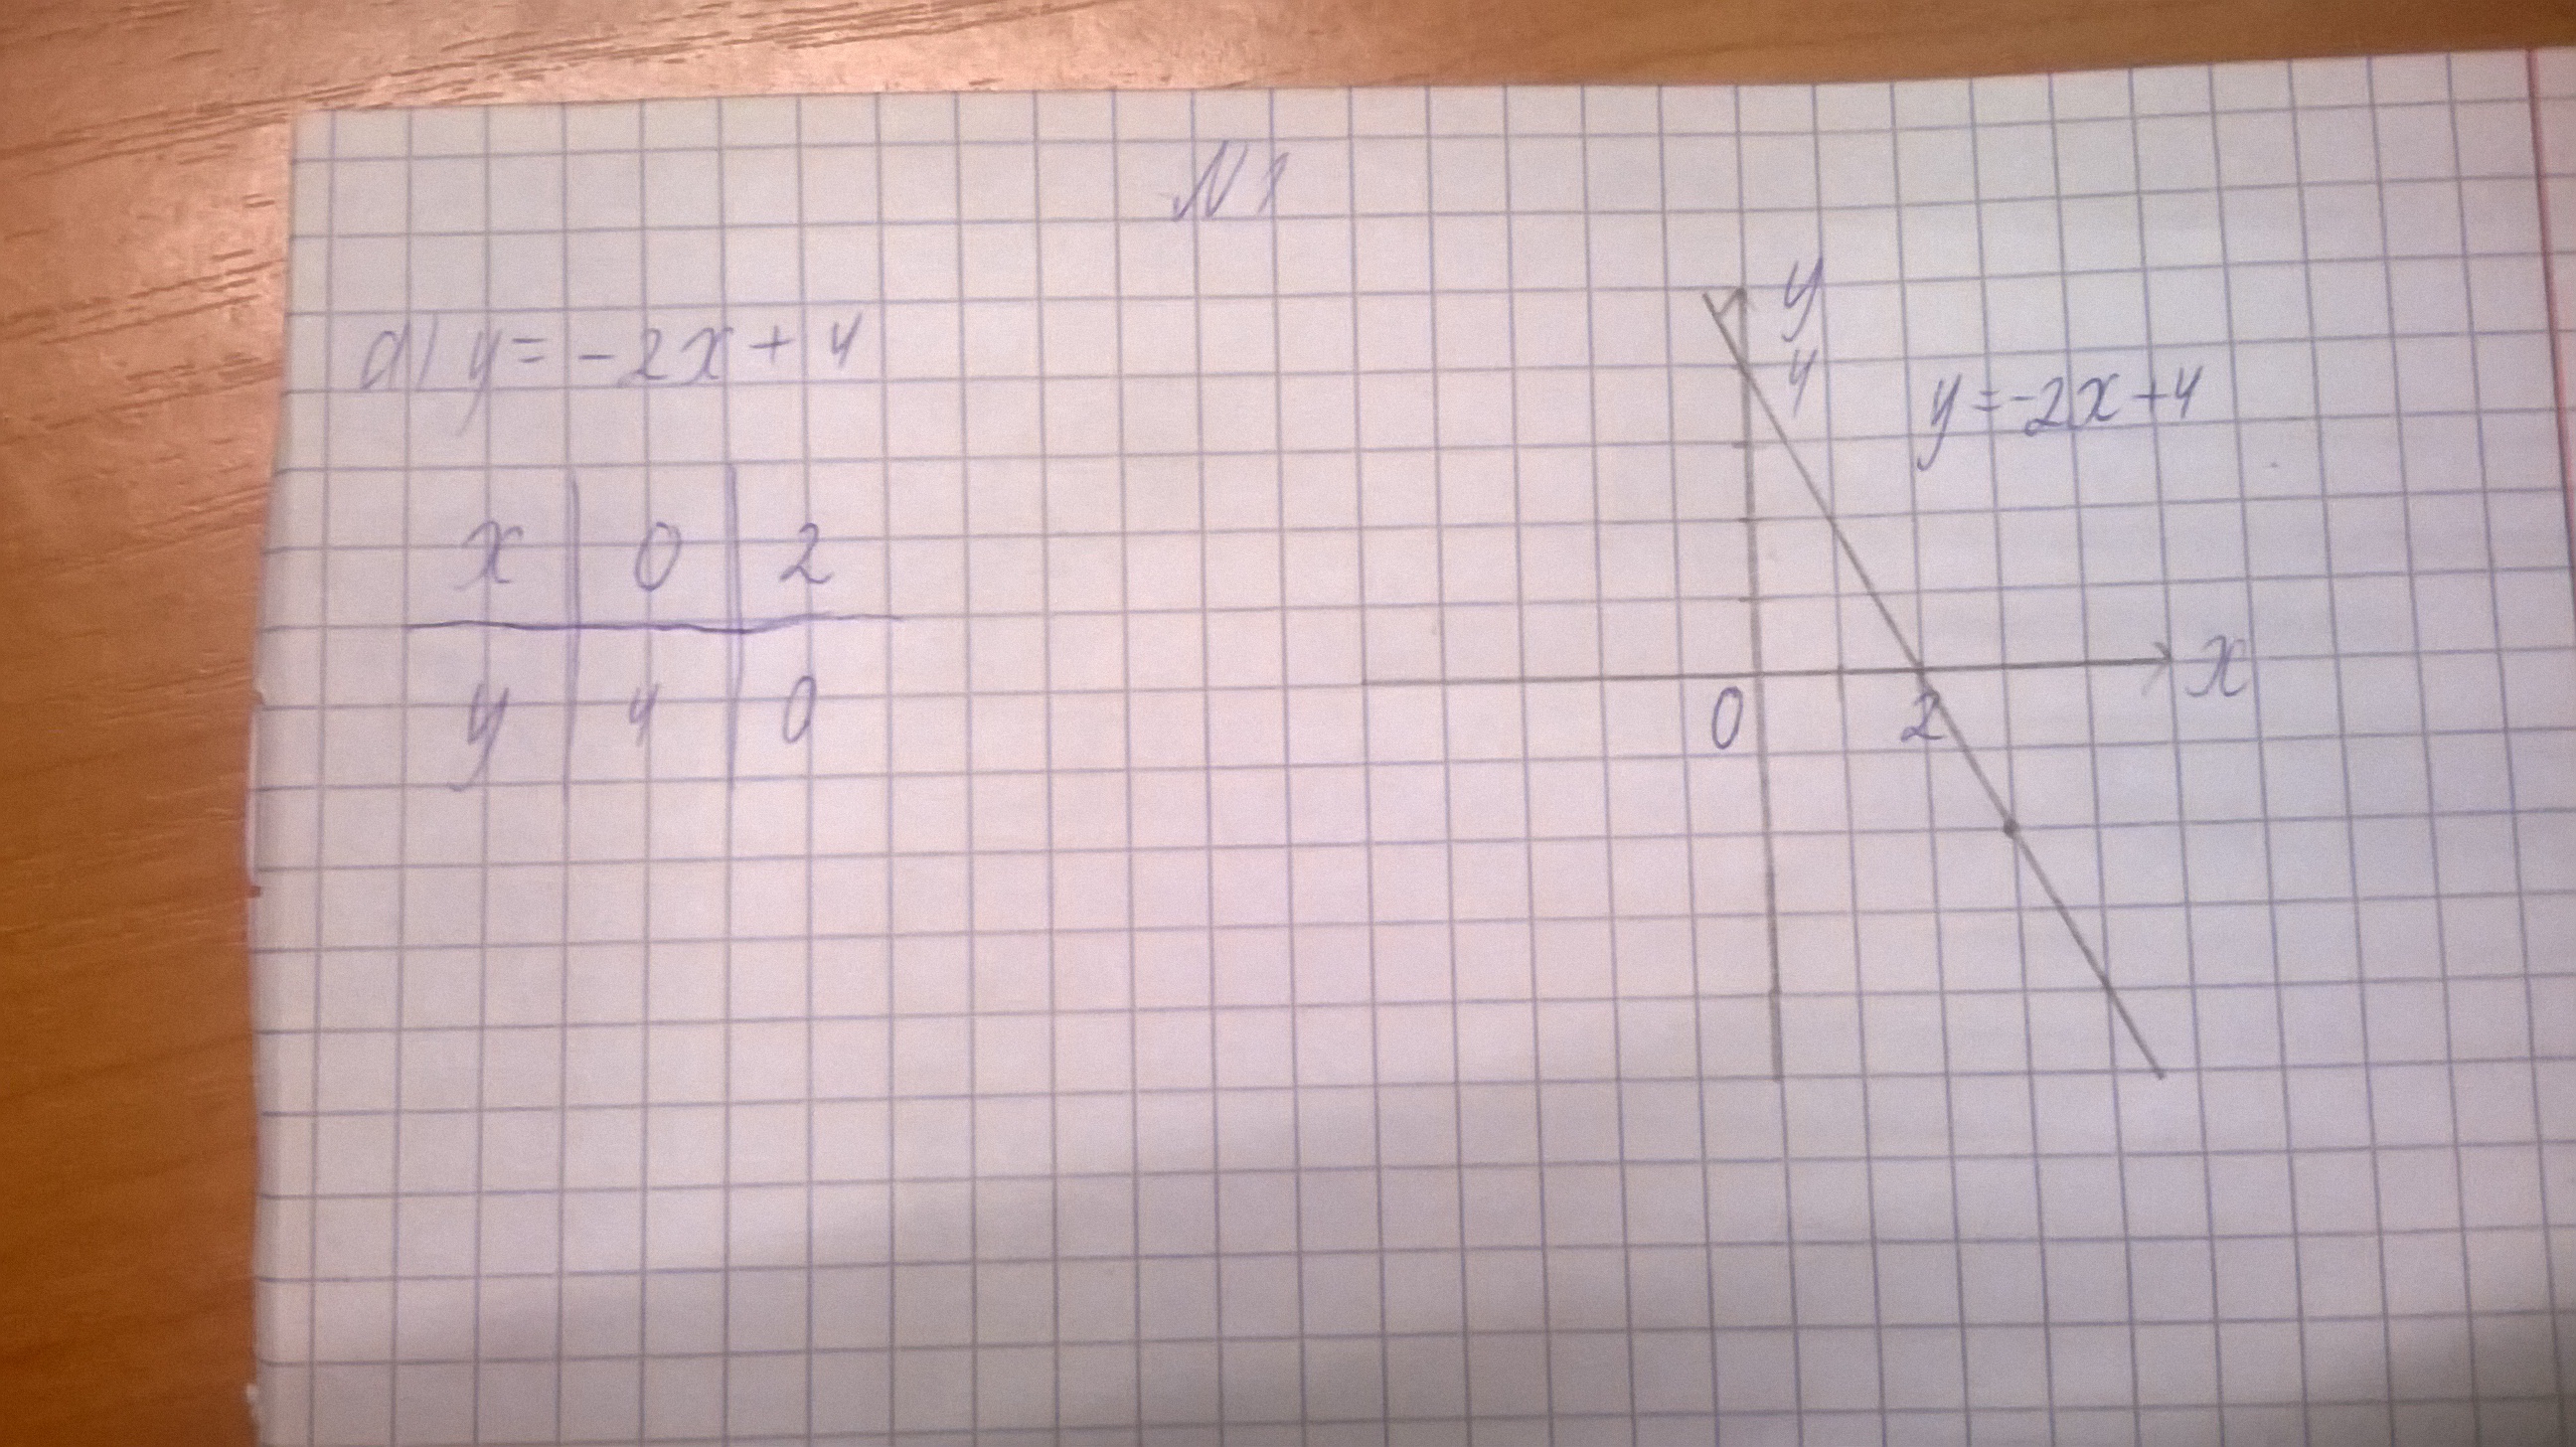 N1
а) y = -2x + 4
x | 0 | 2
y | 4 | 0
y
4
y = -2x + 4
x
0
2